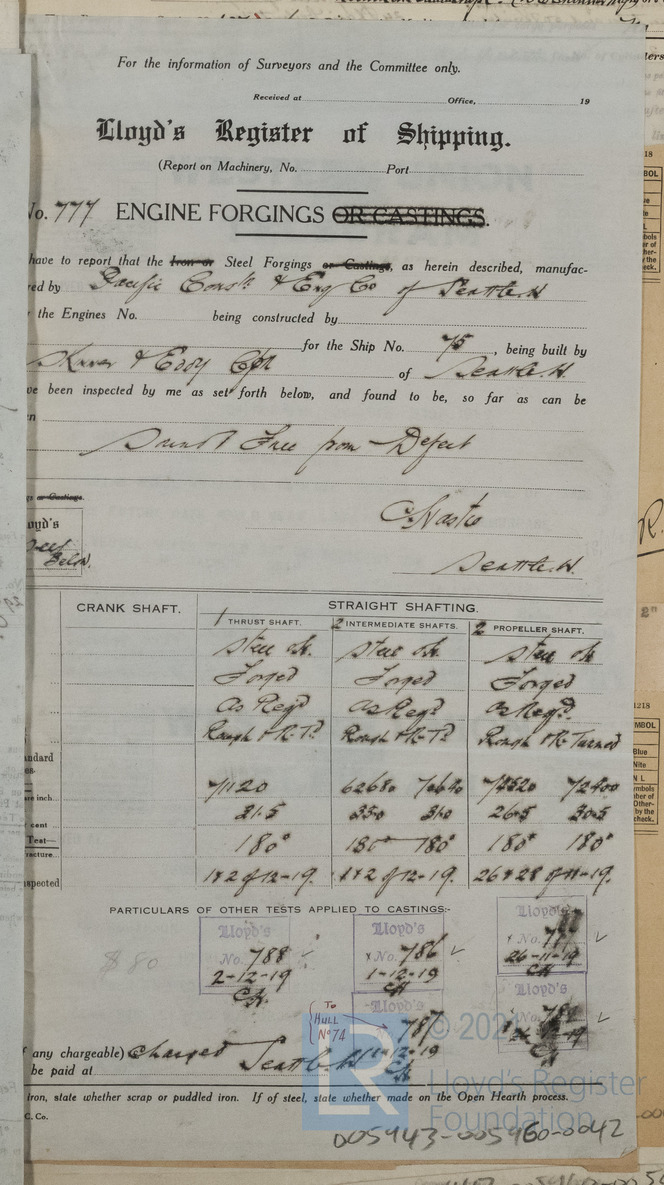 For the information of Surveyors and the Committee only.
Received at Office, 19
Lloyd's Register of Shipping.
(Report on Machinery, No. Port
No. 777 ENGINE FORGINGS OR CASTINGS.
have to report that the Iron or Steel Forgings or Castings, as herein described, manufac-
red by Pacific Const. & Eng Co of Seattle. W
the Engines No. being constructed by
for the Ship No. 75, being built by
& Eddy of Seattle. W.
ve been inspected by me as set forth below, and found to be, so far as can be
en
Sound Free from Defect
or Castings.
oyd's
Below.
Seattle. W.
CRANK SHAFT. STRAIGHT SHAFTING.
1 THRUST SHAFT. 2 INTERMEDIATE SHAFTS. 2 PROPELLER SHAFT.
Steel oh. Steel oh. Steel oh
Forged Forged Forged
as Reqd as Reqd as Reqd.
Rough & R. Td Rough & R. Td Rough & R. Turned
andard
71120 62680 72400
are inch
31.5 350 310 26.5 30.5
cent
180° 180° 180° 180° 180°
Test—
racture
1 & 2 of 12-19. 1 & 2 of 12-19. 26 & 28 of 11-19.
spected
PARTICULARS OF OTHER TESTS APPLIED TO CASTINGS:-
Lloyd's Lloyd's Lloyd's
No. 788 No. 786 No.
2-12-19 1-12-19 26-11-19
CH CH CH
$80
Lloyd's Lloyd's
To
HULL
No 74
787
12-19
CH CH
any chargeable) Charged
be paid at Seattle
© 202
Lloyd's Register
Foundation
LR
iron, state whether scrap or puddled iron. If of steel, state whether made on the Open Hearth process.
C. Co.
005943-005960-0042